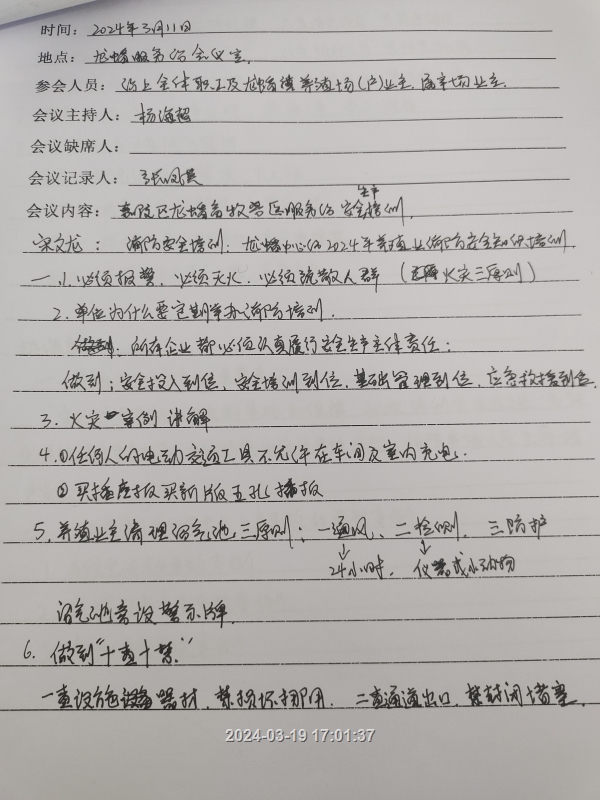 时间：2024年3月11日
地点：龙蟠服务站会议室
参会人员：站上全体职工及龙蟠镇养殖场(户)业主、屠宰场业主.
会议主持人：杨海超
会议缺席人：
会议记录人：张凤
生产
会议内容：区龙蟠畜牧兽医服务站安全培训.
宋文龙：消防安全培训：龙蟠中心站2024年养殖业消防安全知识培训
一、1.必须报警、必须灭火、必须疏散人群（火灾三原则）
2.单位为什么要定期举办消防培训.
所有企业都必须认真履行安全生产主体责任；
做到；安全投入到位，安全培训到位，基础管理到位，应急救援到位.
3.火灾案例讲解
4.①任何人的电动交通工具不允许在车间及室内充电.
②买插座报买新版五孔插板
5.养殖业主清理沼气池三原则：一通风、二检测、三防护
24小时. 仪器或小动物
沼气池旁设警示牌.
6.做到“十查十禁”
一查设施设备器材，禁损坏挪用. 二查通道出口，禁封闭堵塞.
2024-03-19 17:01:37